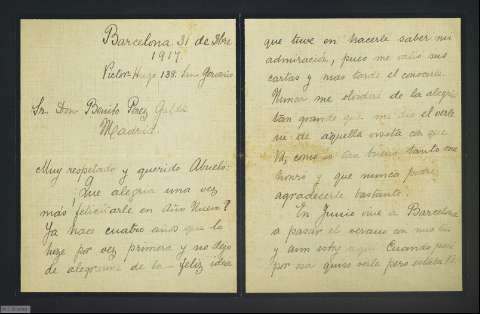 Barcelona 31 de Dbre
1917
Victor Hugo 138. San Gervasio
Sr. Don Benito Pérez Galdós
Madrid.
Muy respetado y querido Abuelo:
Que alegria una vez
más felicitarle en Año Nuevo?
Ya hace cuatro años que lo
hize por vez primera y no dejo
de alegrarme de la feliz idea
que tuve en hacerle saber mi
admiración, pues me valió sus
cartas y mas tarde el conocerle.
Nunca me olvidaré de la alegria
tan grande que me dió el verle
ni de aquella visita con que
Vd, como es tan bueno tanto me
honró y que nunca podré
agradecerle bastante.
En Junio vine a Barcelona
a pasar el verano con mis
y aun estoy aqui. Cuando pasé
por esa quise verle pero estaba Vd.